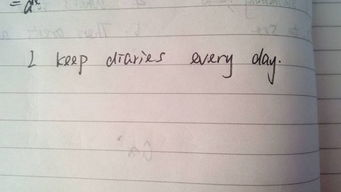 I keep diaries every day.